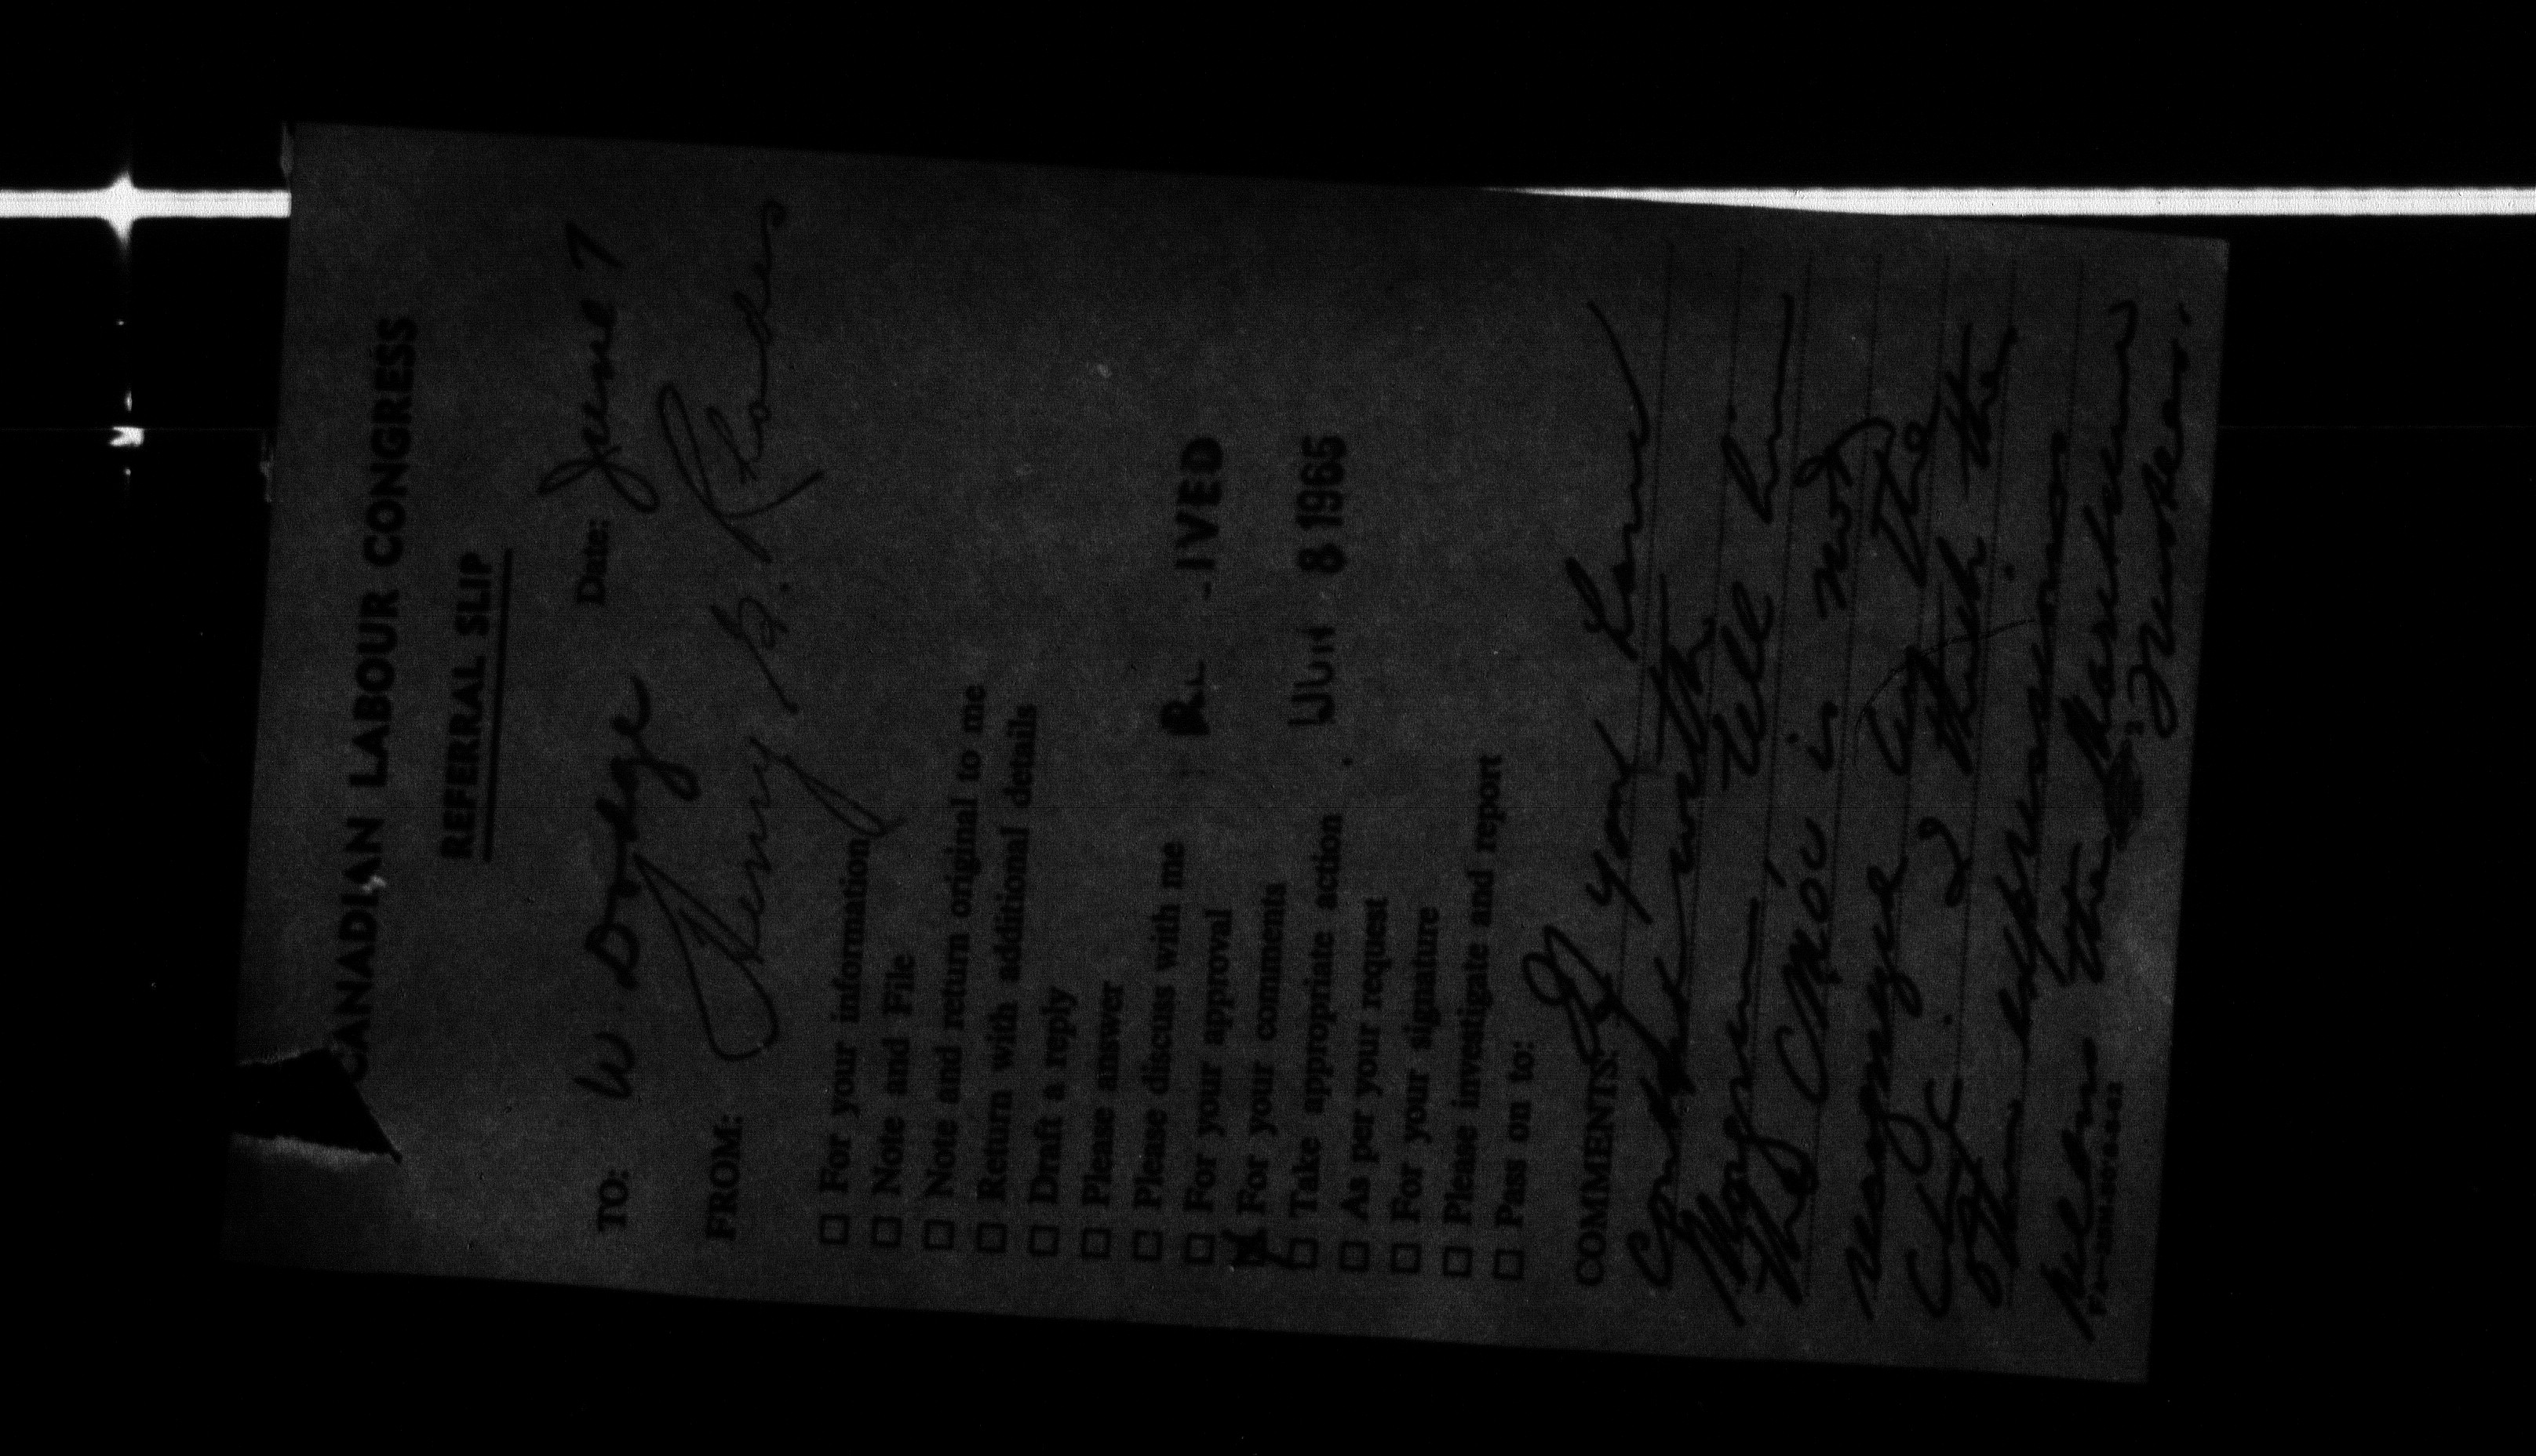 CANADIAN LABOUR CONGRESS
REFERRAL SLIP
TO: W. Dodge Date: June 7
FROM: Henry B. Rhodes
☐ For your information
☐ Note and File
☐ Note and return original to me
☐ Return with additional details
☐ Draft a reply
☐ Please answer
☐ Please discuss with me
☐ For your approval
☒ For your comments
☐ Take appropriate action
☐ As per your request
☐ For your signature
☐ Please investigate and report
☐ Pass on to:
IVED
JUN 8 1965
COMMENTS: If you have
contact with
tell him
the is not
with the
CLC. I think the
other
the Maritimes